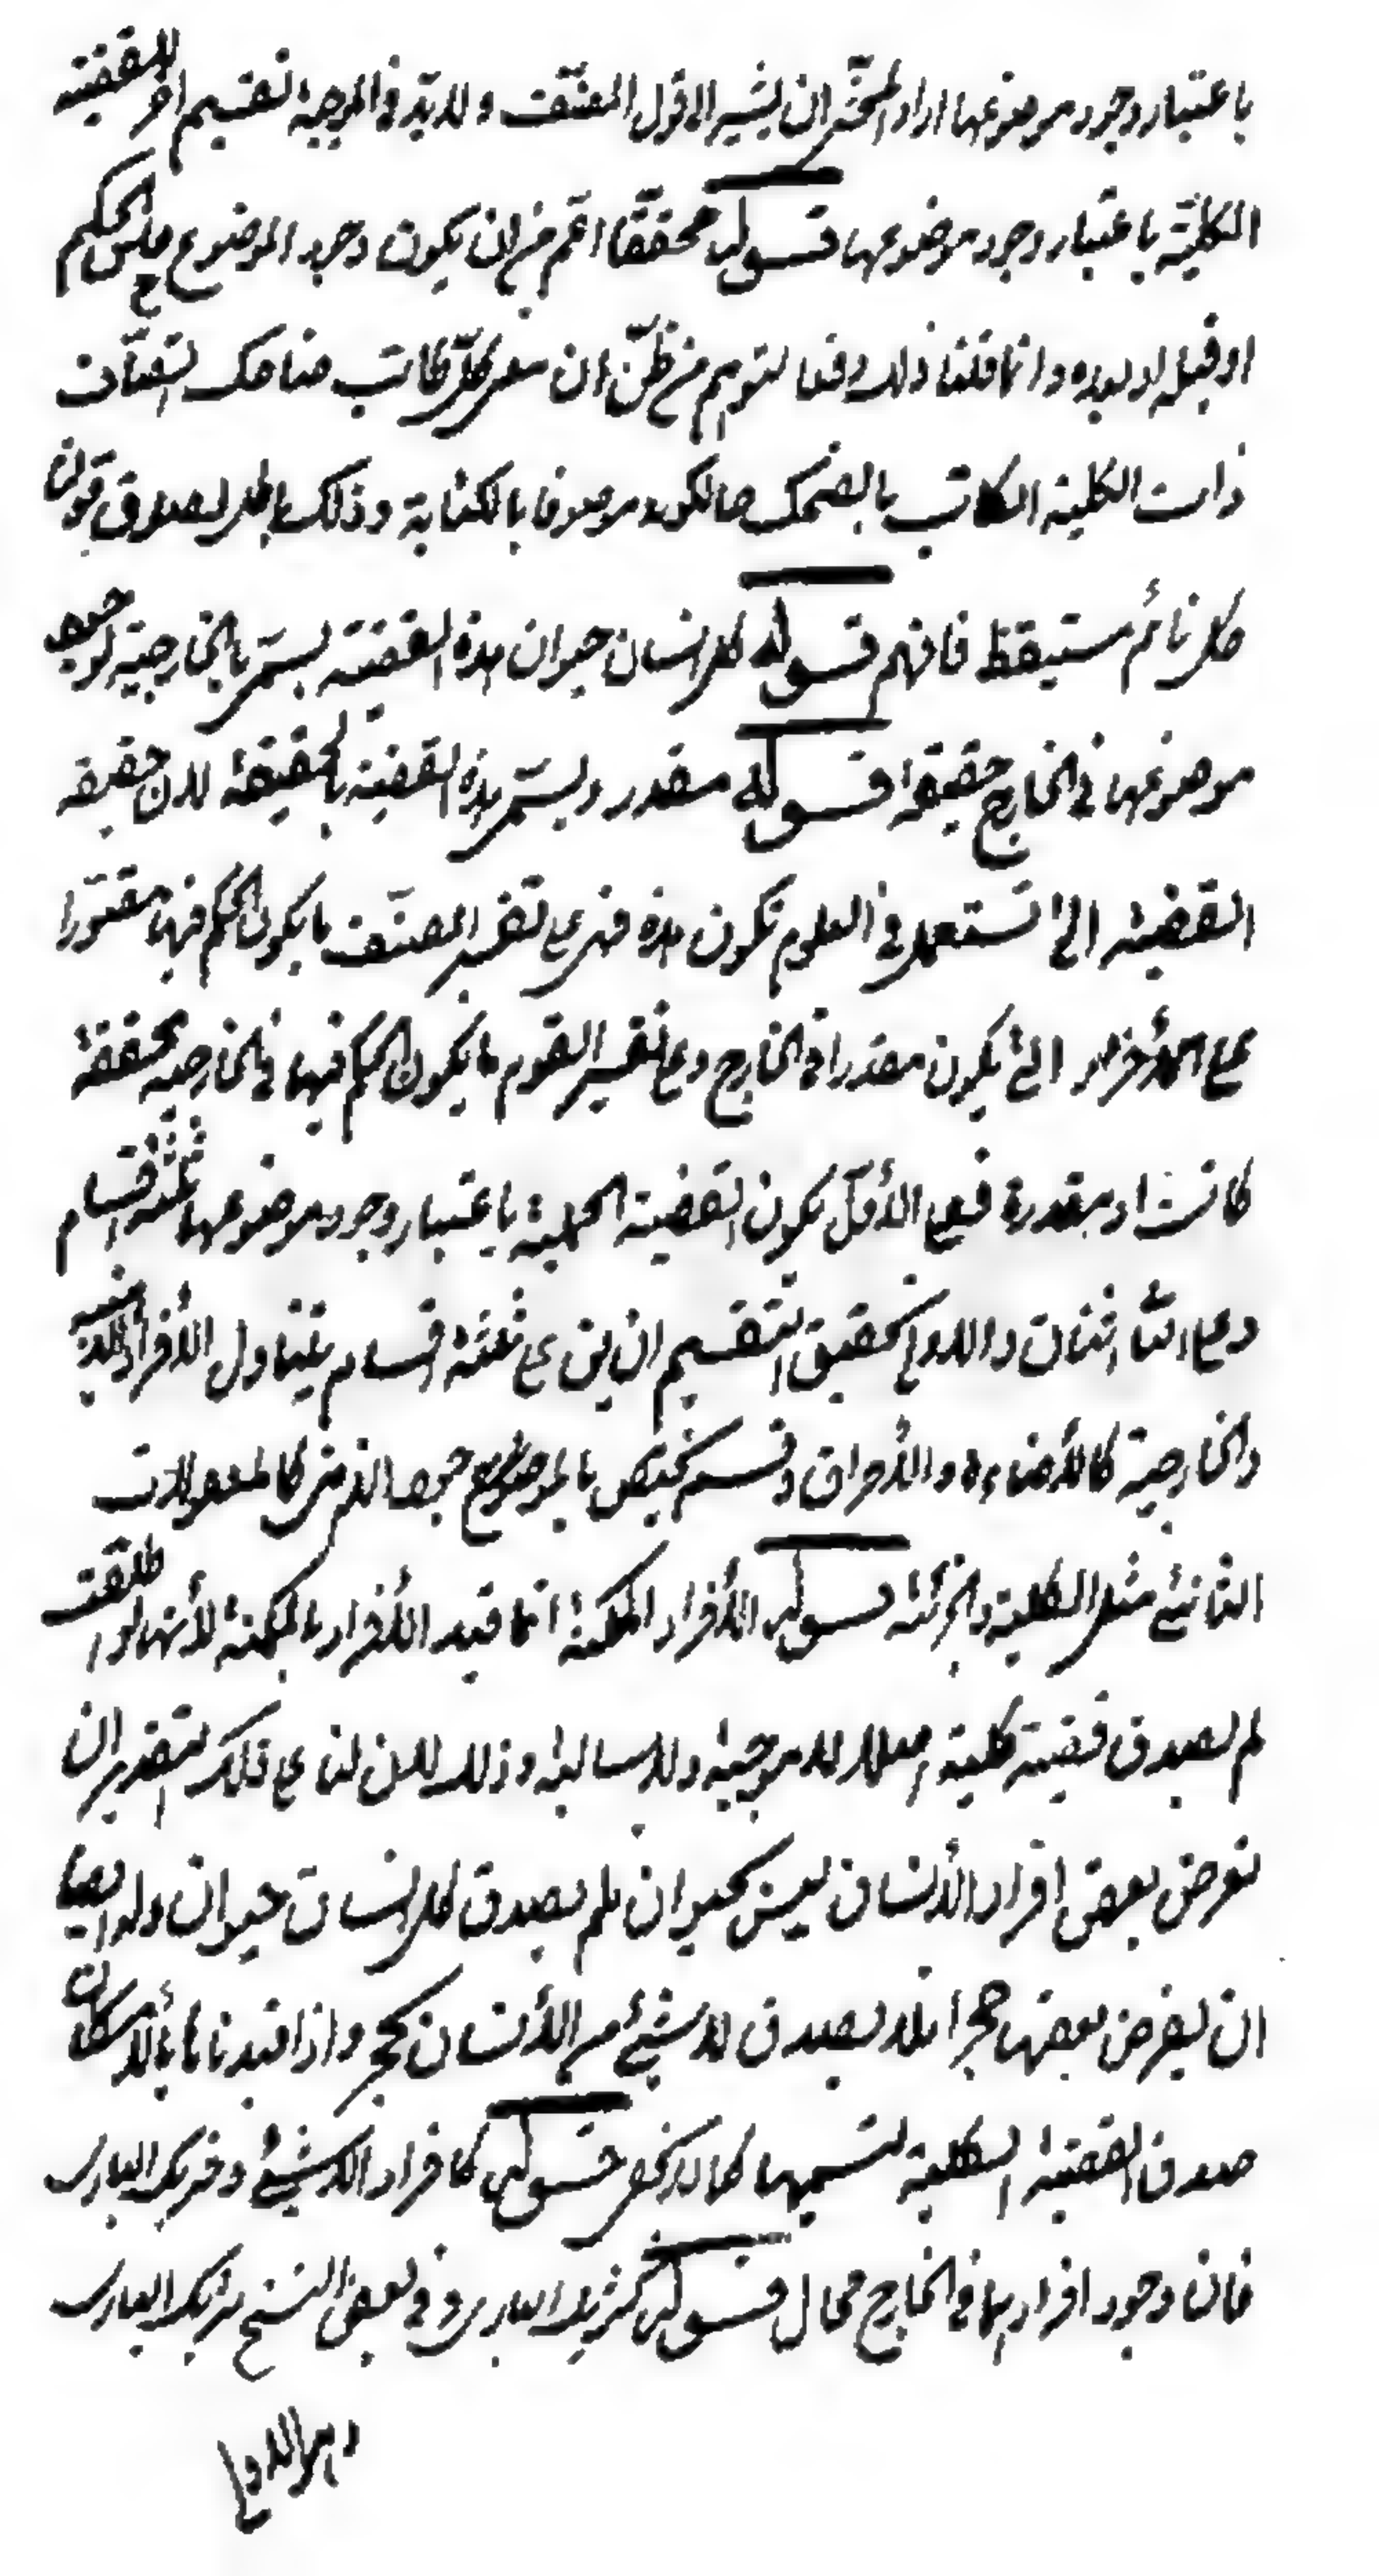 باعتبار وجود موضوعها اراد المحشّى ان يشير الى قول المصنّف ولا بدّ فى الموجبة تقسيم اخر للقضيّة
الكليّة باعتبار وجود موضوعها قوله محققّا اعّم من ان يكون وجود الموضوع حال الحكم
او قبله او بعده وانّما قلنا ذلك دفعا لتوهم من ظنّ ان معنى كلّ كاتب ضاحك اتصاف
ذات الكلية الكاتب بالضحك حال كونه موصوفا بالكتابة وذلك باطل لصدق قولنا
كل نائم مستيقظ فافهم قوله كل انسان حيوان هذه القضيّة يسمّى بالخارجية لوجود
موضوعها فى الخارج حقيقة قوله مقدر ويسمّى هذه القضيّة بالحقيقة لان حقيقة
القضيّة التى تستعمل فى العلوم تكون هذه فهى على تفسير المصنّف ما يكون الحكم فيها مقدّرا
على الأفراد التى يكون مقدرا فى الخارج وعلى تفسير القوم ما يكون الحكم فيها فى الخارجيه محققة
كانت او مقدرة فعلى الأوّل يكون القضيّة الحملية باعتبار وجود موضوعها ثلثة اقسام
وعلى الثّانى اثنان والاولى تحقيق التّقسيم ان يبنى على ثلثة اقسام يتناول الأفراد الذهنية
والخارجية كالأضاءه والأحراق وقسم يختص بالموضوع جود الذهنى كالمعقولات
الثانية مثل الكلية والجزئية قوله الأفراد الممكنة انّما قيد الأفراد بالممكنة لأنها لو اطلقت
لم يصدق قضيّة كلية اصلا لا موجبة ولا سالبة وذلك لان لنا على ذلك التقدير ان
نفرض بعض افراد الأنسان ليس بحيوان فلم يصدق كل انسان حيوان ولنا ايضا
ان نفرض بعضها حجرا فلا يصدق لا شيئ من الأنسان بحجر واذا قيدناها بالأمكان
صدق القضيّة الكلية لقسميها كما لا يخفى قوله كافراد اللاشيئ وشريك البارى
فان وجود افرادهما فى الخارج محال قوله كشريك البارى وفى بعض النسخ شريك البارى
وهو الاولى